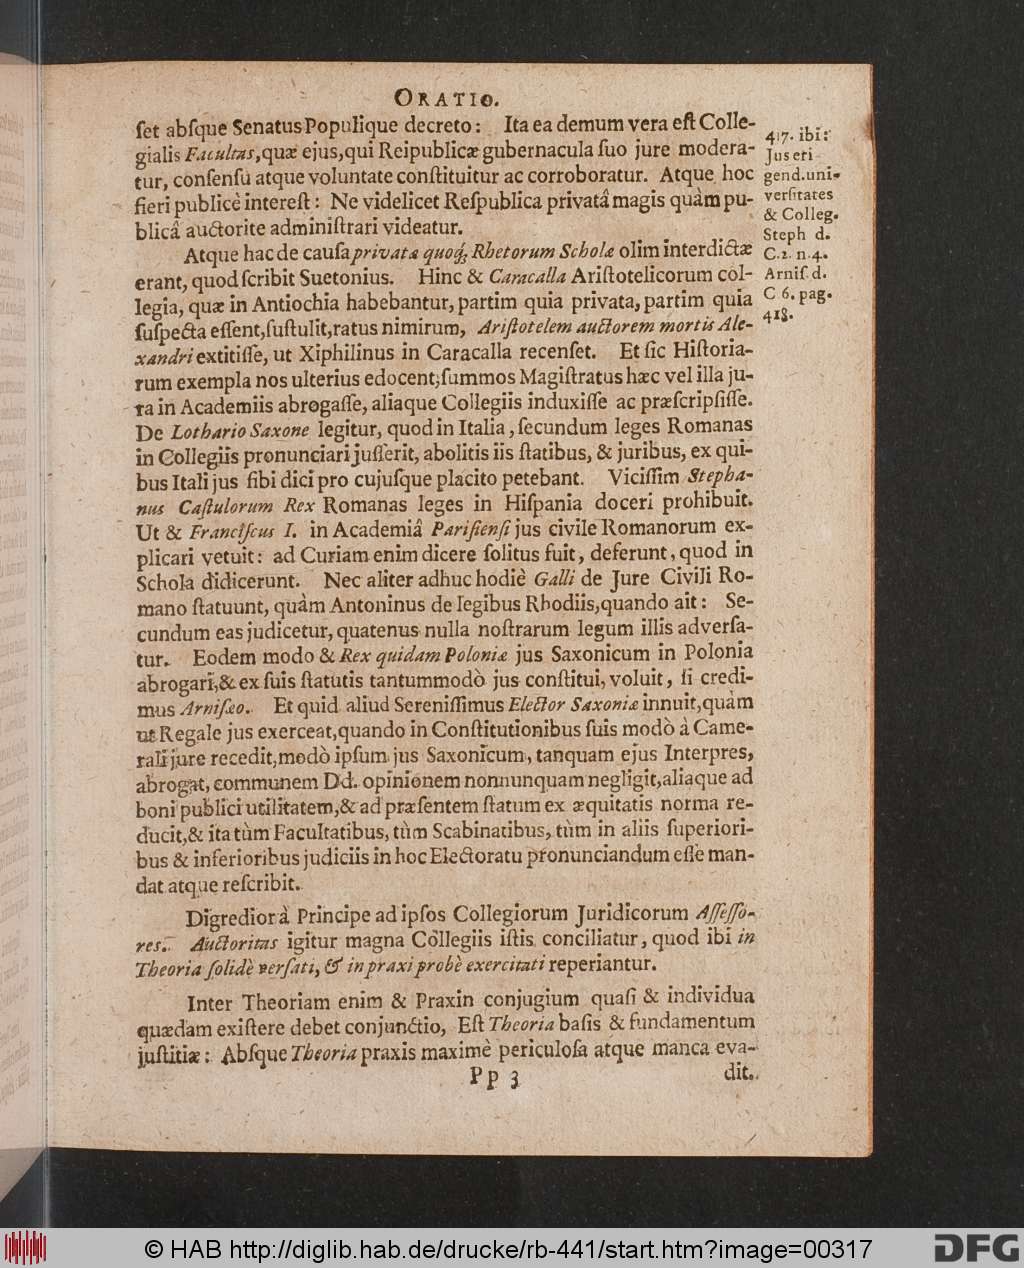 ORATIO.
ſet abſque Senatus Populique decreto: Ita ea demum vera eſt Colle-
gialis Facultas, quæ ejus, qui Reipublicæ gubernacula ſuo jure modera-
tur, conſenſu atque voluntate conſtituitur ac corroboratur. Atque hoc
fieri publicè intereſt: Ne videlicet Reſpublica privatâ magis quàm pu-
blicâ auctorite adminiſtrari videatur.
417. ibi:
Jus eri-
gend. uni-
verſitates
& Colleg.
Steph d.
C. 2. n. 4.
Arniſ. d.
C 6. pag.
418.
Atque hac de cauſa privatæ quoq́; Rhetorum Scholæ olim interdictæ
erant, quod ſcribit Suetonius. Hinc & Caracalla Ariſtotelicorum col-
legia, quæ in Antiochia habebantur, partim quia privata, partim quia
ſuſpecta eſſent, ſuſtulit, ratus nimirum, Ariſtotelem auctorem mortis Ale-
xandri extitiſſe, ut Xiphilinus in Caracalla recenſet. Et ſic Hiſtoria-
rum exempla nos ulterius edocent; ſummos Magiſtratus hæc vel illa ju-
ra in Academiis abrogaſſe, aliaque Collegiis induxiſſe ac præſcripſiſſe.
De Lothario Saxone legitur, quod in Italia, ſecundum leges Romanas
in Collegiis pronunciari juſſerit, abolitis iis ſtatibus, & juribus, ex qui-
bus Itali jus ſibi dici pro cujuſque placito petebant. Viciſſim Stepha-
nus Caſtulorum Rex Romanas leges in Hiſpania doceri prohibuit.
Ut & Franciſcus I. in Academiâ Pariſienſi jus civile Romanorum ex-
plicari vetuit: ad Curiam enim dicere ſolitus fuit, deferunt, quod in
Schola didicerunt. Nec aliter adhuc hodiè Galli de Jure Civili Ro-
mano ſtatuunt, quàm Antoninus de legibus Rhodiis, quando ait: Se-
cundum eas judicetur, quatenus nulla noſtrarum legum illis adverſa-
tur. Eodem modo & Rex quidam Poloniæ jus Saxonicum in Polonia
abrogari, & ex ſuis ſtatutis tantummodò jus conſtitui, voluit, ſi credi-
mus Arniſæo. Et quid aliud Sereniſſimus Elector Saxoniæ innuit, quàm
ut Regale jus exerceat, quando in Conſtitutionibus ſuis modò à Came-
rali jure recedit, modò ipſum jus Saxonicum, tanquam ejus Interpres,
abrogat, communem Dd. opinionem nonnunquam negligit, aliaque ad
boni publici utilitatem, & ad præſentem ſtatum ex æquitatis norma re-
ducit, & ita tùm Facultatibus, tùm Scabinatibus, tùm in aliis ſuperiori-
bus & inferioribus judiciis in hoc Electoratu pronunciandum eſſe man-
dat atque reſcribit.
Digredior à Principe ad ipſos Collegiorum Juridicorum Aſſeſſo-
res. Auctoritas igitur magna Collegiis iſtis conciliatur, quod ibi in
Theoria ſolidè verſati, & in praxi probè exercitati reperiantur.
Inter Theoriam enim & Praxin conjugium quaſi & individua
quædam exiſtere debet conjunctio, Eſt Theoria baſis & fundamentum
juſtitiæ: Abſque Theoria praxis maximè periculoſa atque manca eva-
Pp 3
dit.
© HAB http://diglib.hab.de/drucke/rb-441/start.htm?image=00317
DFG